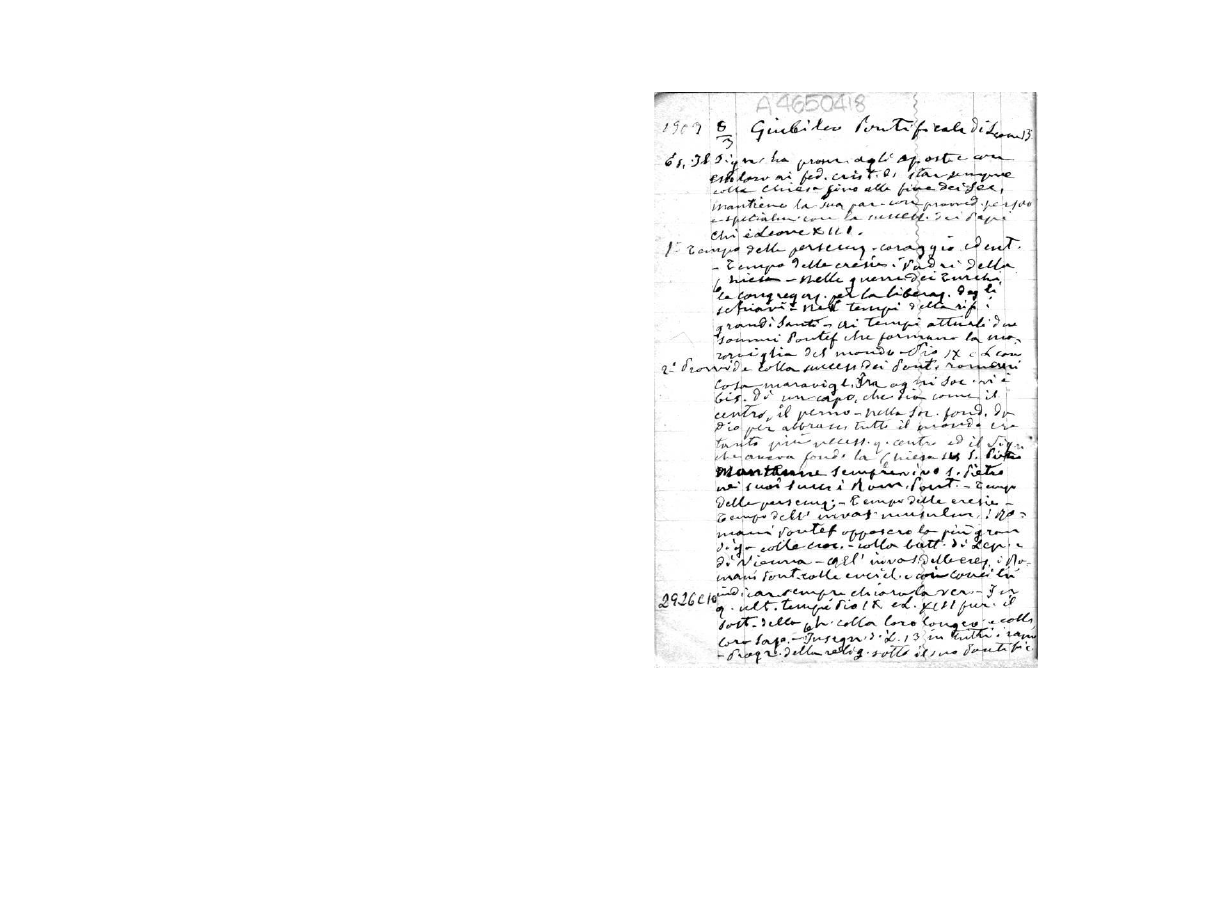 A4650418
1909 8/3 Giubileo Pontificale di Leone 13
Es. Il Sign. ha prom. agli apost. e con
essi loro ai fed. crist. di star sempre
colla Chiesa fino alla fine dei sec.
mantiene la sua par. con provvid. per
e spetialm. con la success. dei Papi
Chi è Leone XIII.
1° Tempo delle persecuz. coraggio ident.
- Tempo delle eresie i Padri della
Chiesa - Nelle guerre dei Turchi
le congregaz. per la liberaz. degli
schiavi - Nei tempi della rif. i
grandi Santi - Ai tempi attuali due
sommi Pontef. che formano la me-
raviglia del mondo - Pio IX e Leon
2° Provvide colla success. dei Pont. romani
Cosa maravigl. Fra ogni soc. vi è
bis. di un capo, che sia come il
centro, il perno - nella Soc. fond. da
Dio per abbrac. tutto il mondo era
tanto più necess. q. centro ed il Sign.
che aveva fond. la Chiesa su S. Pietro
Mantenne sempre vivo S. Pietro
nei suoi succ. i Rom. Pont. - Tempo
delle persecuz. - Tempo delle eresie -
Tempo dell' invas. musulm. i Ro-
mani Pontef. opposero la più gran
diga colle croc. - colla batt. di Lep. e
di Vienna - All' invas. delle eres. i Ro-
mani Pont. colle encicl. e con concilii
indicar. sempre chiara la ver. - In
2926 C10
q. ult. tempi Pio IX e L. XIII fur. il
sost. della Ch. colla loro longev. e colla
loro sap. - Insegn. di L. 13 in tutti i rami
- Progr. della relig. sotto il suo Pontific.